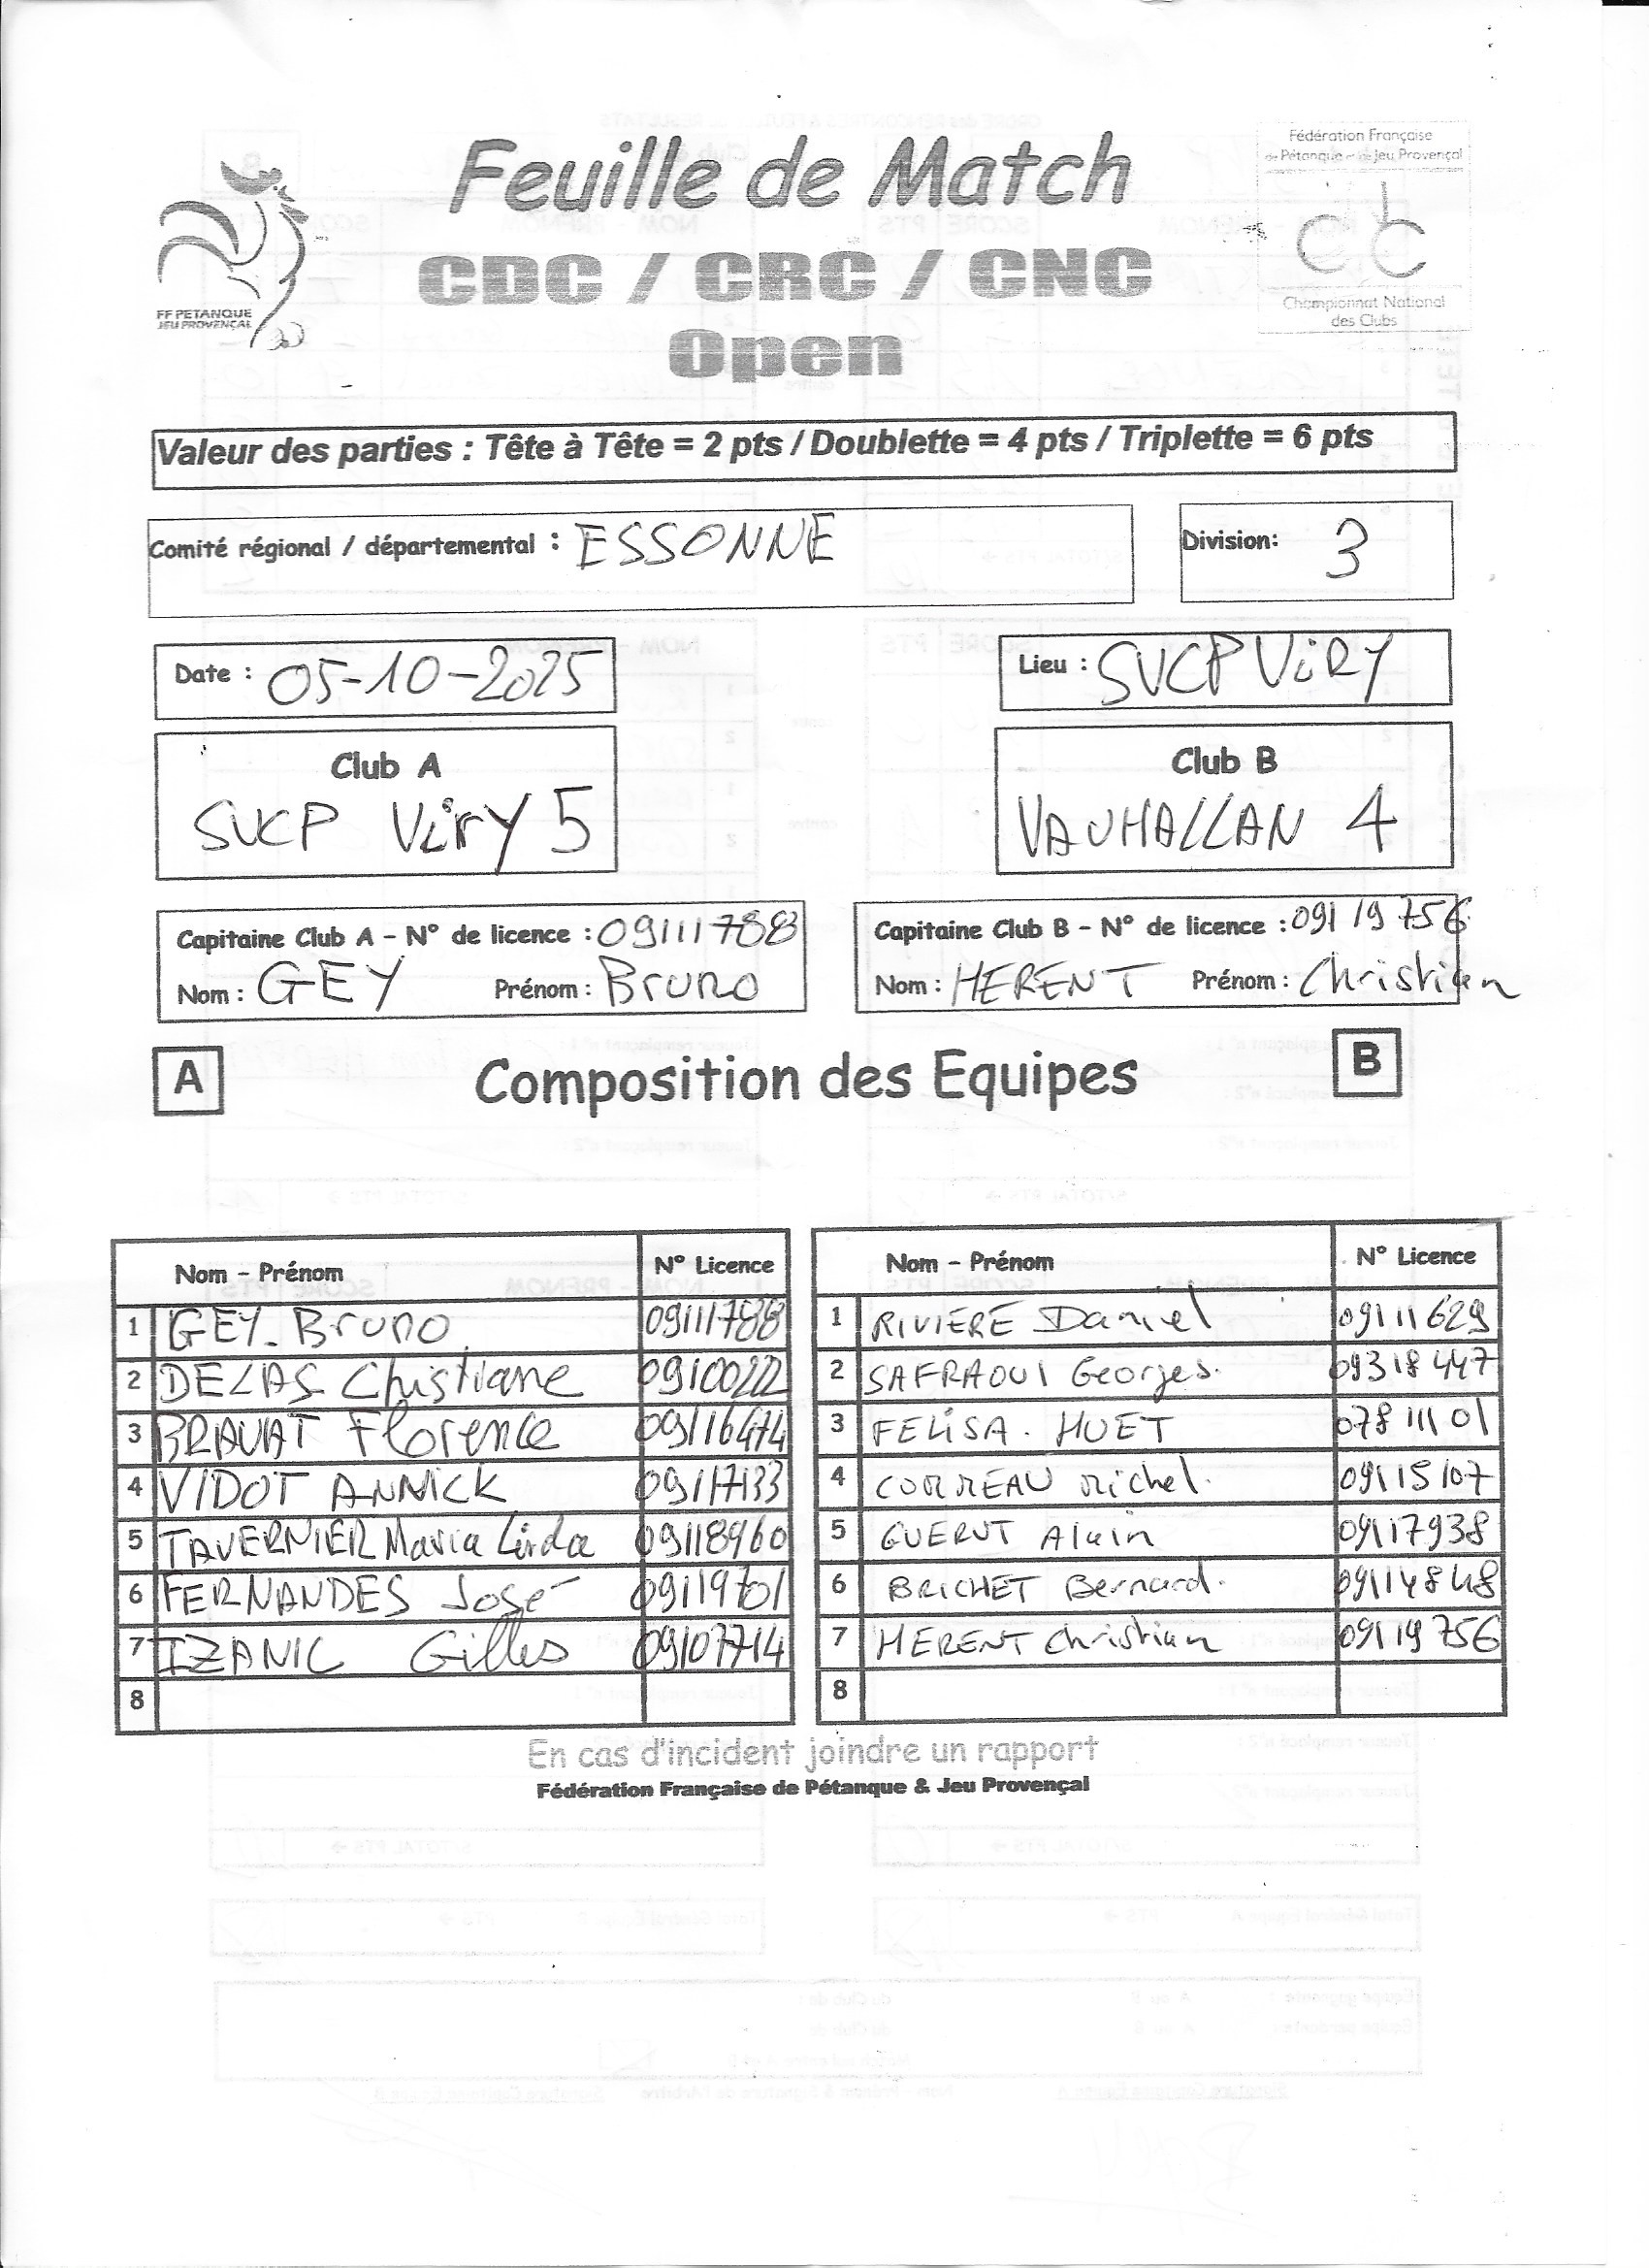 Feuille de Match
CDC / CRC / CNC
Open
FF PETANQUE
JEU PROVENÇAL
Fédération Française
de Pétanque et de Jeu Provençal
Championnat National
des Clubs
Valeur des parties : Tête à Tête = 2 pts / Doublette = 4 pts / Triplette = 6 pts
Comité régional / départemental : ESSONNE
Division: 3
Date : 05-10-2025
Lieu : SVCP ViRY
Club A
SVCP Viry 5
Club B
VAUHALLAN 4
Capitaine Club A - N° de licence : 09111788
Nom : GEY Prénom : Bruno
Capitaine Club B - N° de licence : 09119756
Nom : HERENT Prénom : Christian
A
Composition des Equipes
B
Nom - Prénom N° Licence
1 GEY. Bruno 09111788
2 DELAS Christiane 0910022
3 BRAVAT Florence 09116474
4 VIDOT ANNICK 09117133
5 TAVERNIER Maria Linda 09118960
6 FERNANDES José 09119701
7 IZANIC Gilles 09107714
8
Nom - Prénom N° Licence
1 RIVIERE Daniel 09111629
2 SAFRAOUI Georges. 09318447
3 FELiSA. HUET 07811101
4 CORREAU Michel. 09115107
5 GUERUT Alain 09117938
6 BRICHET Bernard. 09114848
7 HERENT Christian 09119756
8
En cas d'incident joindre un rapport
Fédération Française de Pétanque & Jeu Provençal